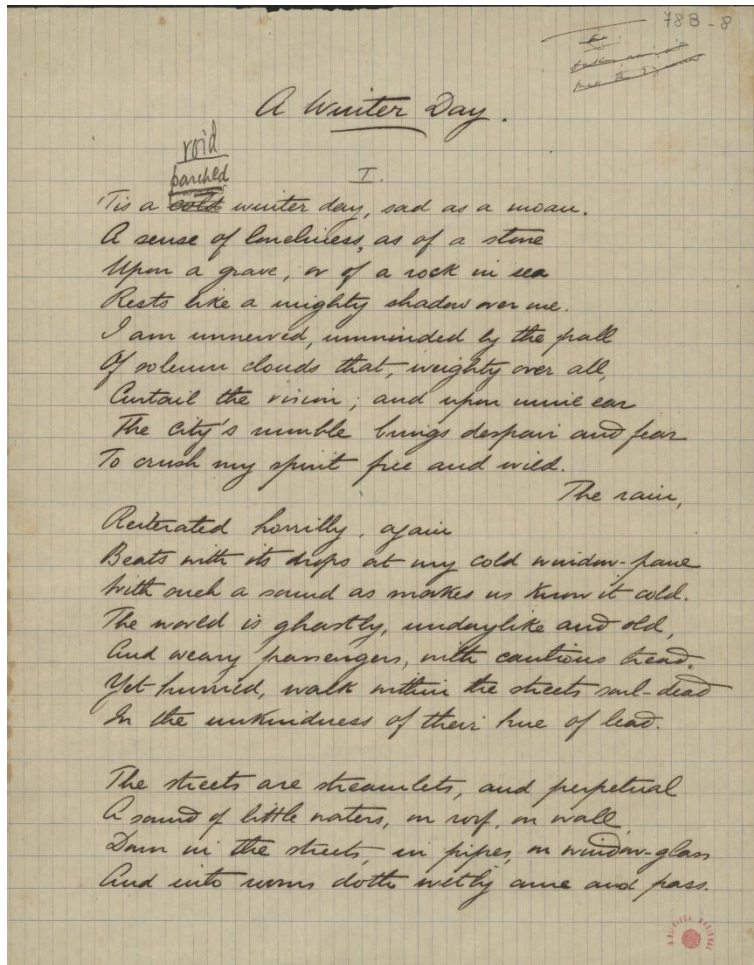 78B-8
A Winter Day.
void
parched
I.
'Tis a cold winter day, sad as a moan.
A sense of loneliness, as of a stone
Upon a grave, or of a rock in sea
Rests like a mighty shadow over me.
I am unnerved, unminded by the pall
Of solemn clouds that, weighty over all,
Curtail the vision; and upon mine ear
The city's rumble brings despair and fear
To crush my spirit free and wild.
The rain,
Reiterated horribly, again
Beats with its drops at my cold window-pane
With such a sound as makes us know it cold.
The world is ghastly, undaylike and old,
And weary passengers, with cautious tread,
Yet hurried, walk within the streets soul-dead
In the unkindness of their hue of lead.
The streets are streamlets, and perpetual
A sound of little waters, on roof, on wall
Down in the streets, in pipes, on window-glass
And into rooms doth wetly come and pass.